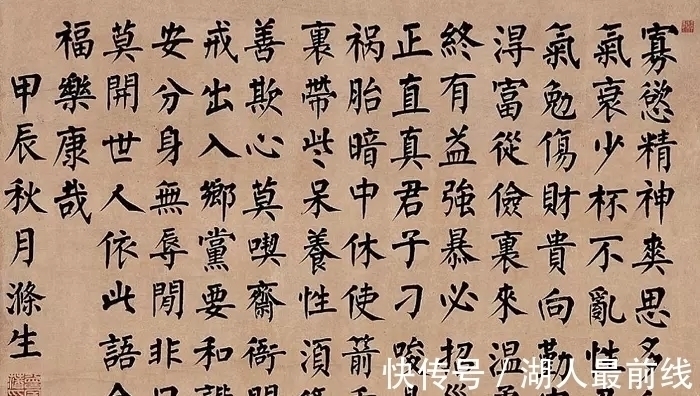 寡慾精神爽思多
氣衰少杯不亂性
氣勉傷財貴向勤
淂富從儉裏來温
終有益強暴必招
正直真君子刁唆是
祸胎暗中休使箭
裏帶些呆養性湏
善欺心莫喫齋衙門
戒出入鄉黨要和諧
安分身無辱閒非
莫開世人依此語
福樂康哉
甲辰秋月滌生
快传号/湖人最前线